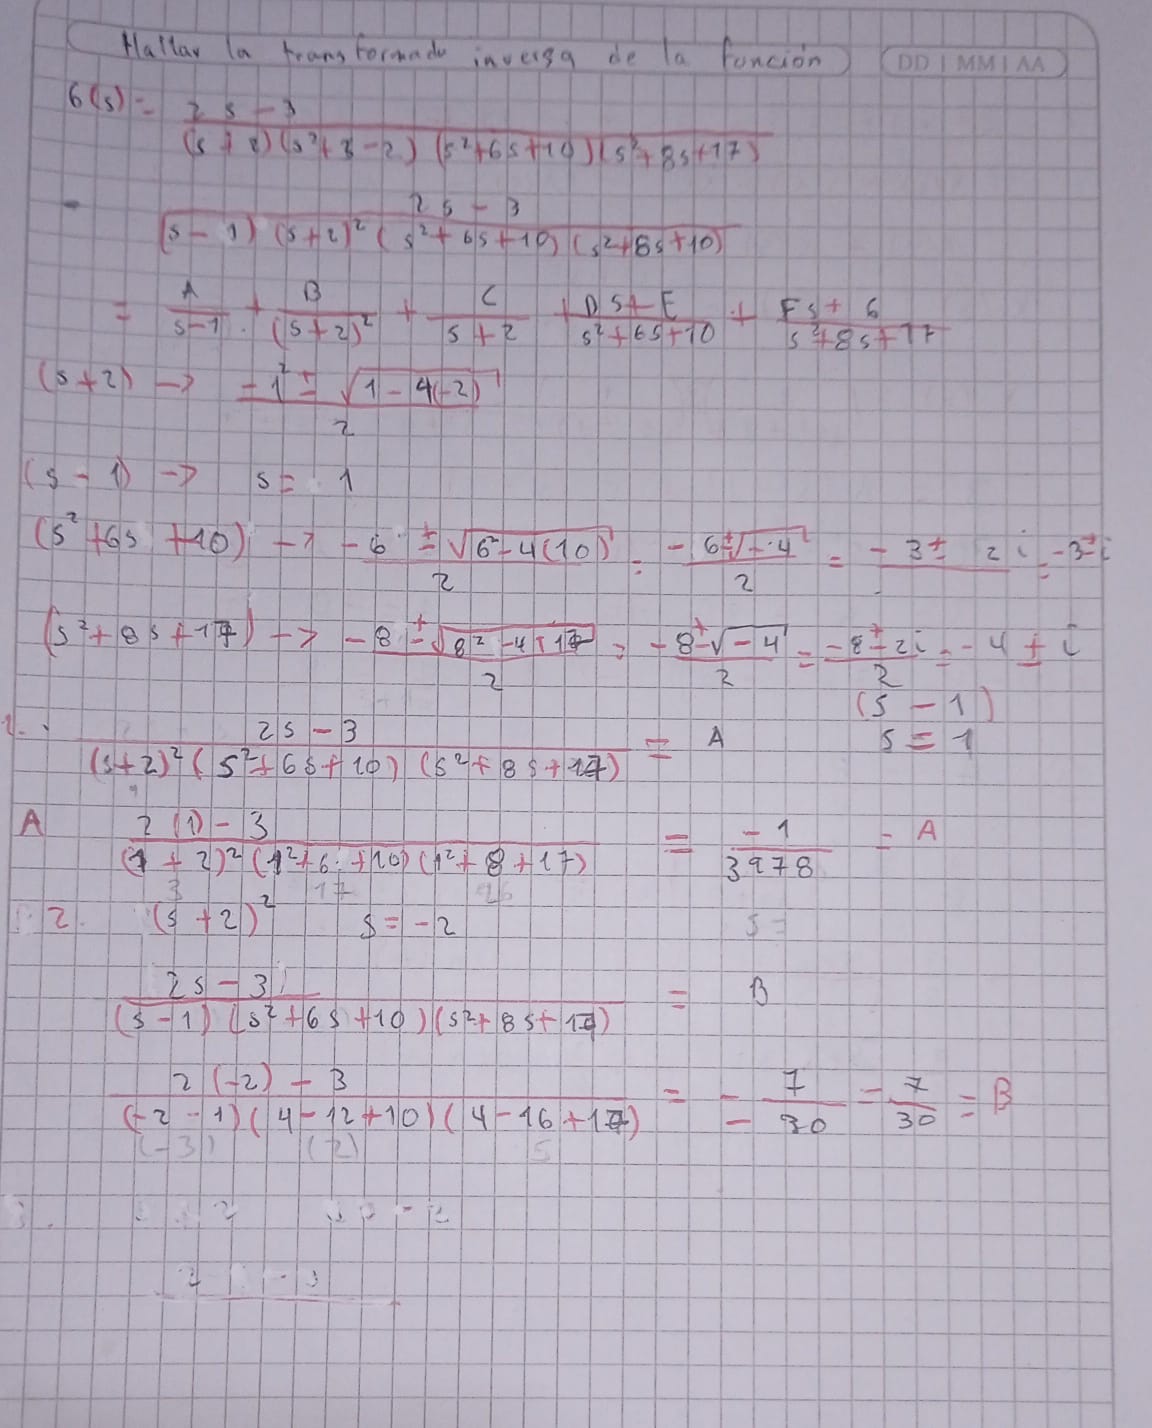 Hallar la transformada inversa de la función
DD | MM | AA
G(s) = 2s - 3 / (s + 2)(s² + s - 2)(s² + 6s + 10)(s² + 8s + 17)
- 2s - 3 / (s - 1)(s + 2)²(s² + 6s + 10)(s² + 8s + 10)
= A / s - 1 + B / (s + 2)² + C / s + 2 + Ds + E / s² + 6s + 10 + Fs + G / s² + 8s + 17
(s + 2) → -1² ± √1 - 4(-2) / 2
(s - 1) → s = 1
(s² + 6s + 10) → -6 ± √6² - 4(10) / 2 = -6 ± √-4 / 2 = -3 ± 2i = -3 ± i
(s² + 8s + 17) → -8 ± √8² - 4(17) / 2 = -8 ± √-4 / 2 = -8 ± 2i / 2 = -4 ± i
(s - 1)
1. 2s - 3 / (s + 2)²(s² + 6s + 10)(s² + 8s + 17) = A s = 1
A 2(1) - 3 / (1 + 2)²(1² + 6 + 10)(1² + 8 + 17) = -1 / 3978 = A
3 17 26
2. (s + 2)² s = -2 s =
2s - 3 / (s - 1)(s² + 6s + 10)(s² + 8s + 17) = B
2(-2) - 3 / (-2 - 1)(4 - 12 + 10)(4 - 16 + 17) = - 7 / - 30 = 7 / 30 = B
(-3) (2) 5